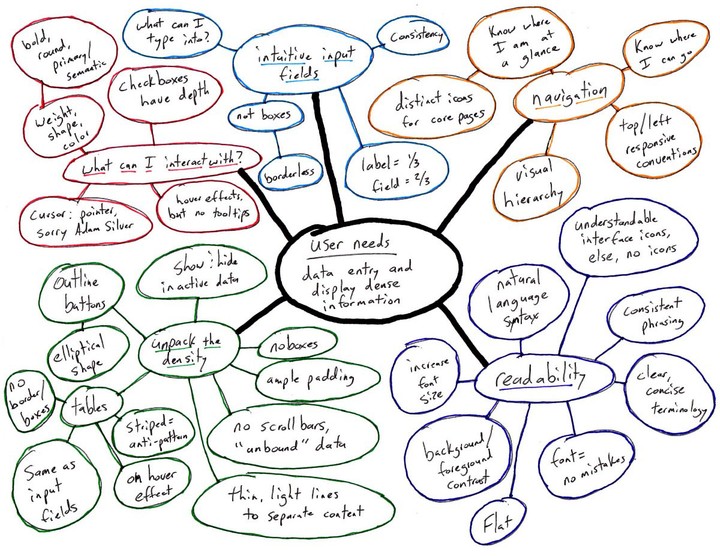 user needs
data entry and
display dense
information
what can I
type into?
intuitive input
fields
consistency
not boxes
borderless
label = 1/3
field = 2/3
Know where
I am at
a glance
Know where
I can go
navigation
distinct icons
for core pages
top/left
responsive
conventions
visual
hierarchy
bold,
round,
primary/
semantic
weight,
shape,
color
checkboxes
have depth
what can I interact with?
cursor: pointer,
sorry Adam Silver
hover effects,
but no tooltips
understandable
interface icons,
else, no icons
natural
language
syntax
consistent
phrasing
increase
font
size
readability
clear,
concise
terminology
background/
foreground
contrast
font =
no mistakes
Flat
show : hide
inactive data
outline
buttons
elliptical
shape
unpack the
density
no boxes
ample padding
no
border/
boxes
tables
striped =
anti-pattern
no scroll bars,
"unbound" data
Same as
input
fields
on hover
effect
thin, light lines
to separate content